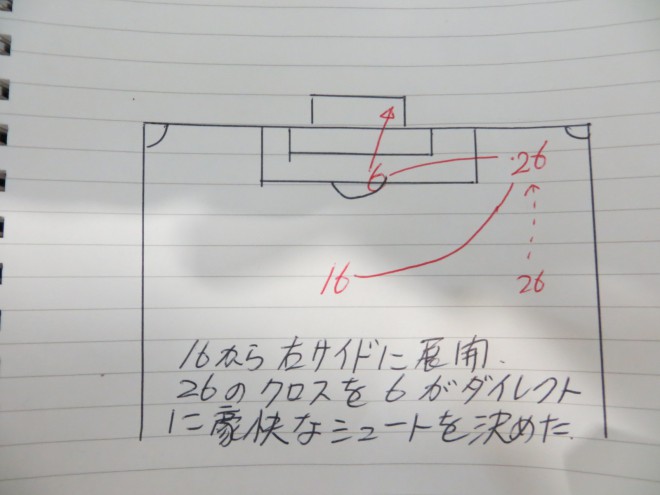 6
26
16
26
16から右サイドに展開.
26のクロスを6がダイレクト
に豪快なシュートを決めた.